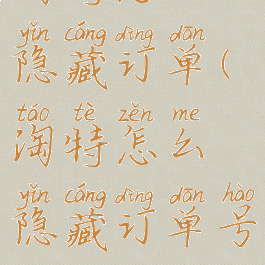 yǐn cáng dìng dān
隐藏订单(
táo tè zěn me
淘特怎么
yǐn cáng dìng dān hào
隐藏订单号